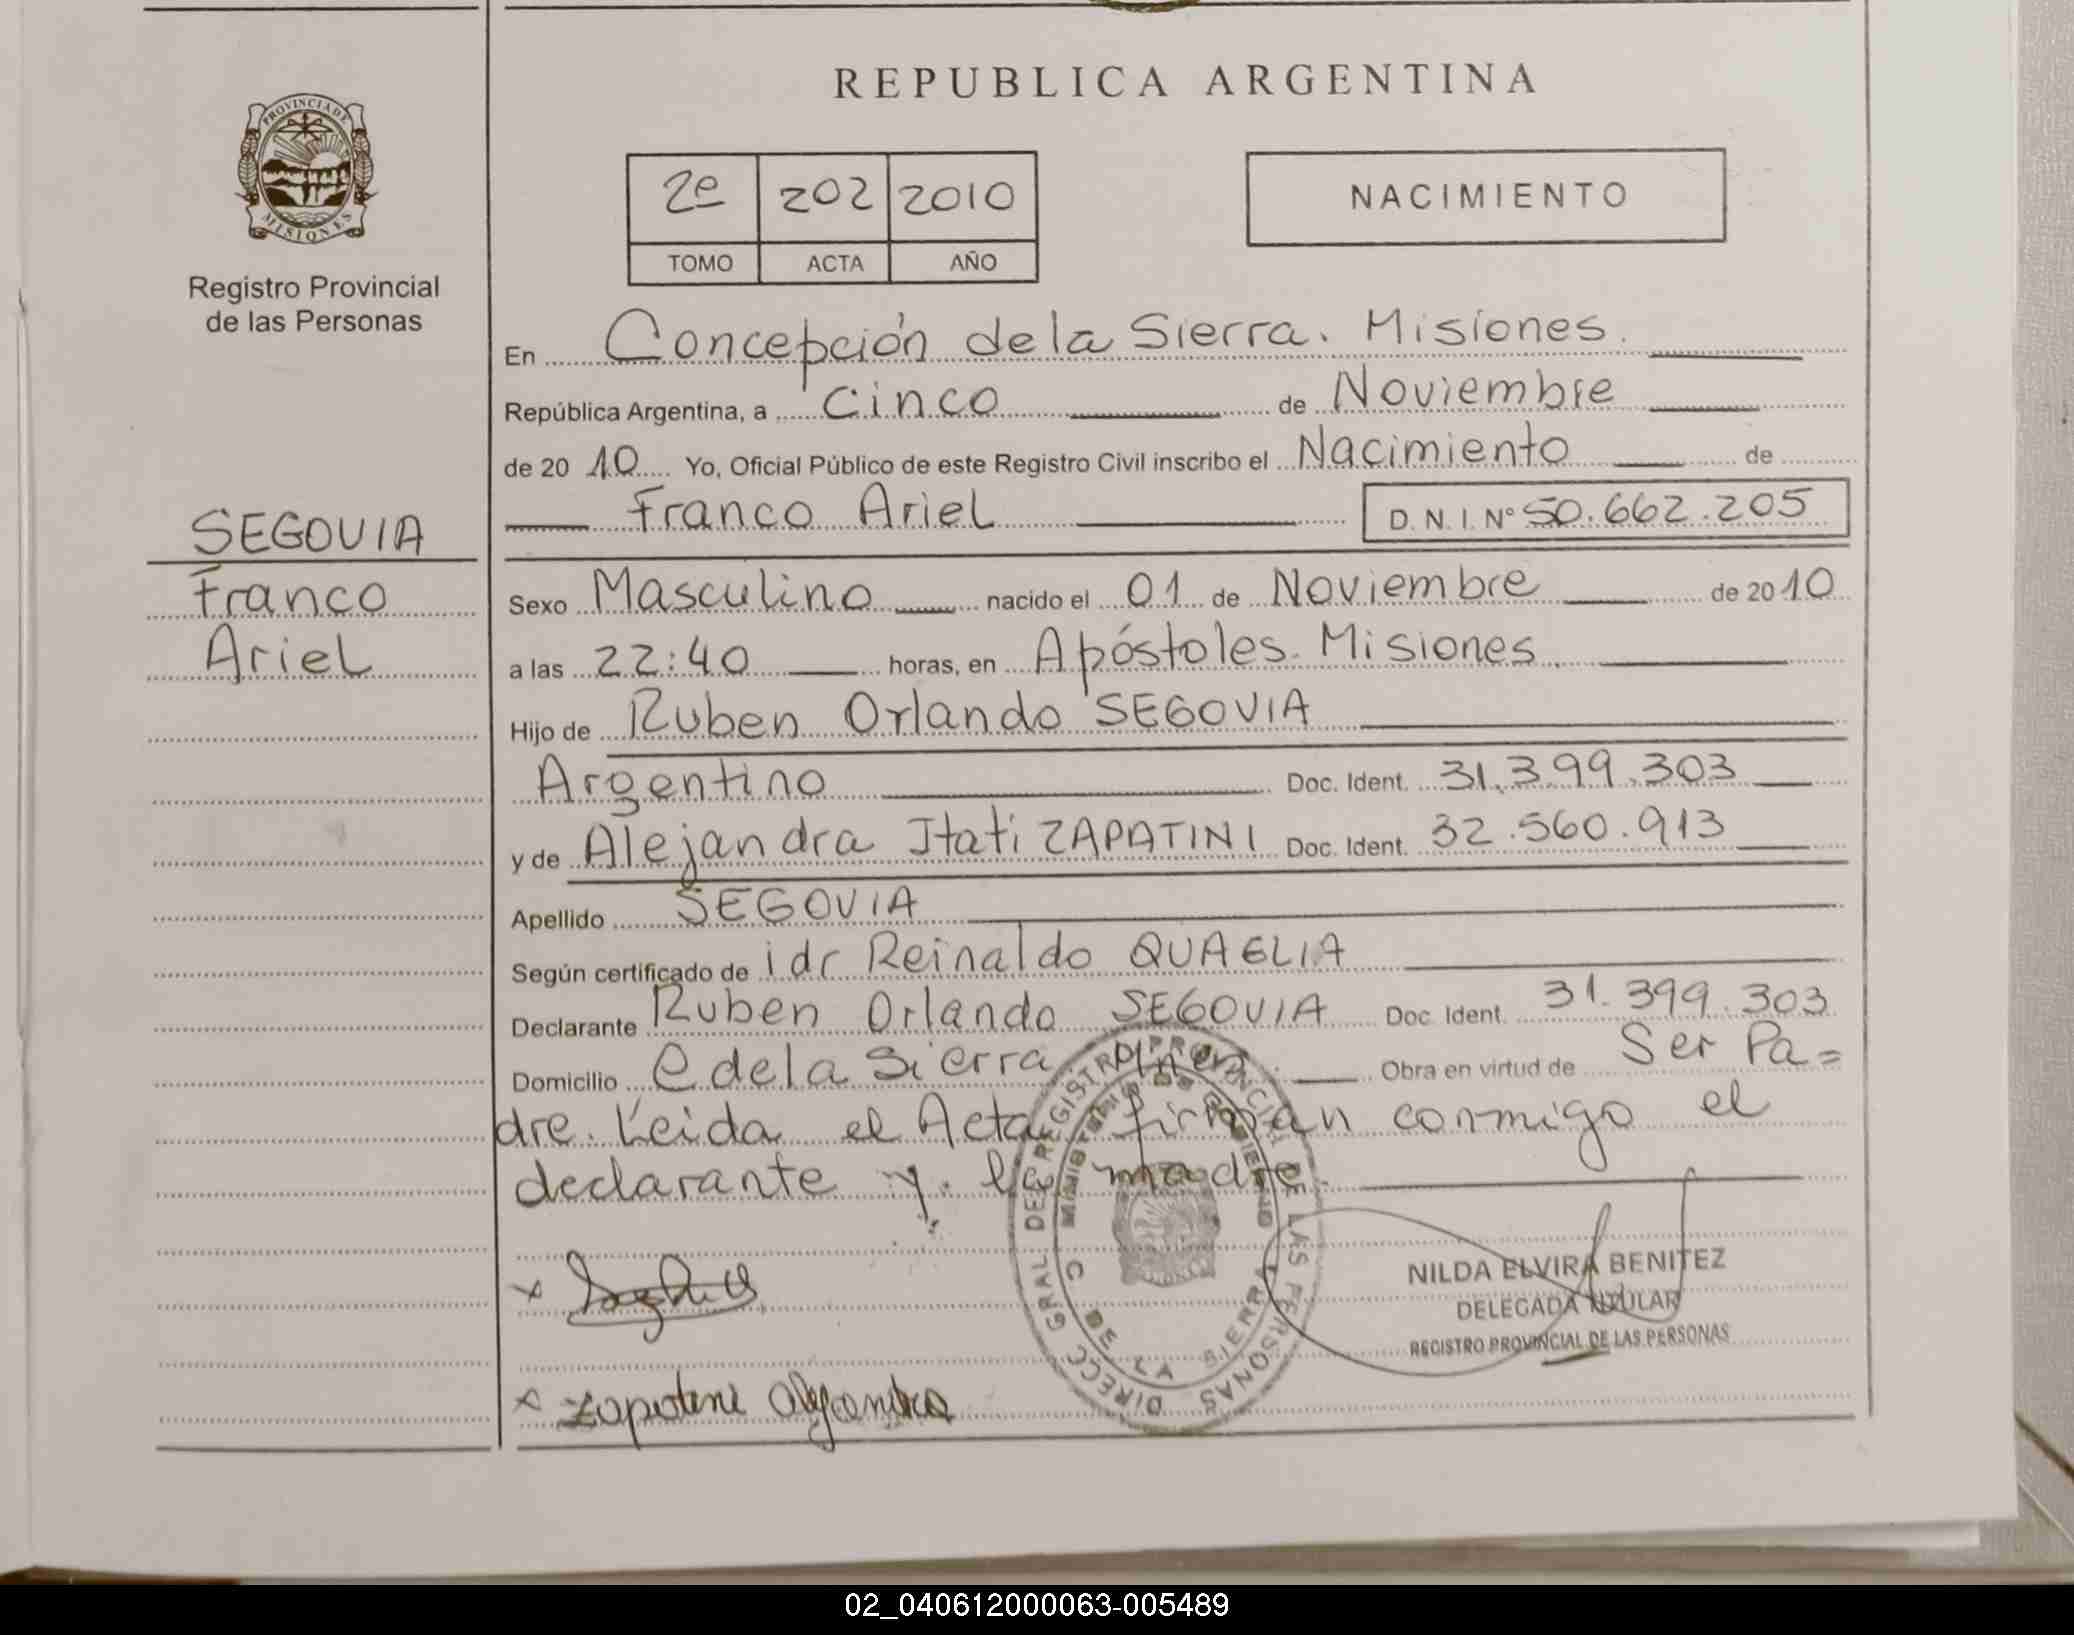 REPUBLICA ARGENTINA
PROVINCIA DE
MISIONES
Registro Provincial
de las Personas
2º 202 2010
TOMO ACTA AÑO
NACIMIENTO
En Concepción de la Sierra. Misiones.
República Argentina, a Cinco de Noviembre
de 2010 Yo, Oficial Público de este Registro Civil inscribo el Nacimiento de
Franco Ariel D.N.I. Nº 50.662.205
SEGOVIA
Franco
Ariel
Sexo Masculino nacido el 01 de Noviembre de 2010
a las 22:40 horas, en Apóstoles. Misiones.
Hijo de Ruben Orlando SEGOVIA
Argentino Doc. Ident. 31.399.303
y de Alejandra Itati ZAPATINI Doc. Ident. 32.560.913
Apellido SEGOVIA
Según certificado de idr Reinaldo QUAGLIA
Declarante Ruben Orlando SEGOVIA Doc. Ident. 31.399.303
Domicilio C de la Sierra Obra en virtud de Ser Pa=
dre. Leida el Acta firman conmigo el
declarante y la madre.
DIRECC GRAL DEL REGISTRO PROVINCIAL DE LAS PERSONAS
MINISTERIO DE GOBIERNO
C DE LA SIERRA
NILDA ELVIRA BENITEZ
DELEGADA TITULAR
REGISTRO PROVINCIAL DE LAS PERSONAS
x
x Zapatini Alejandra
02_040612000063-005489